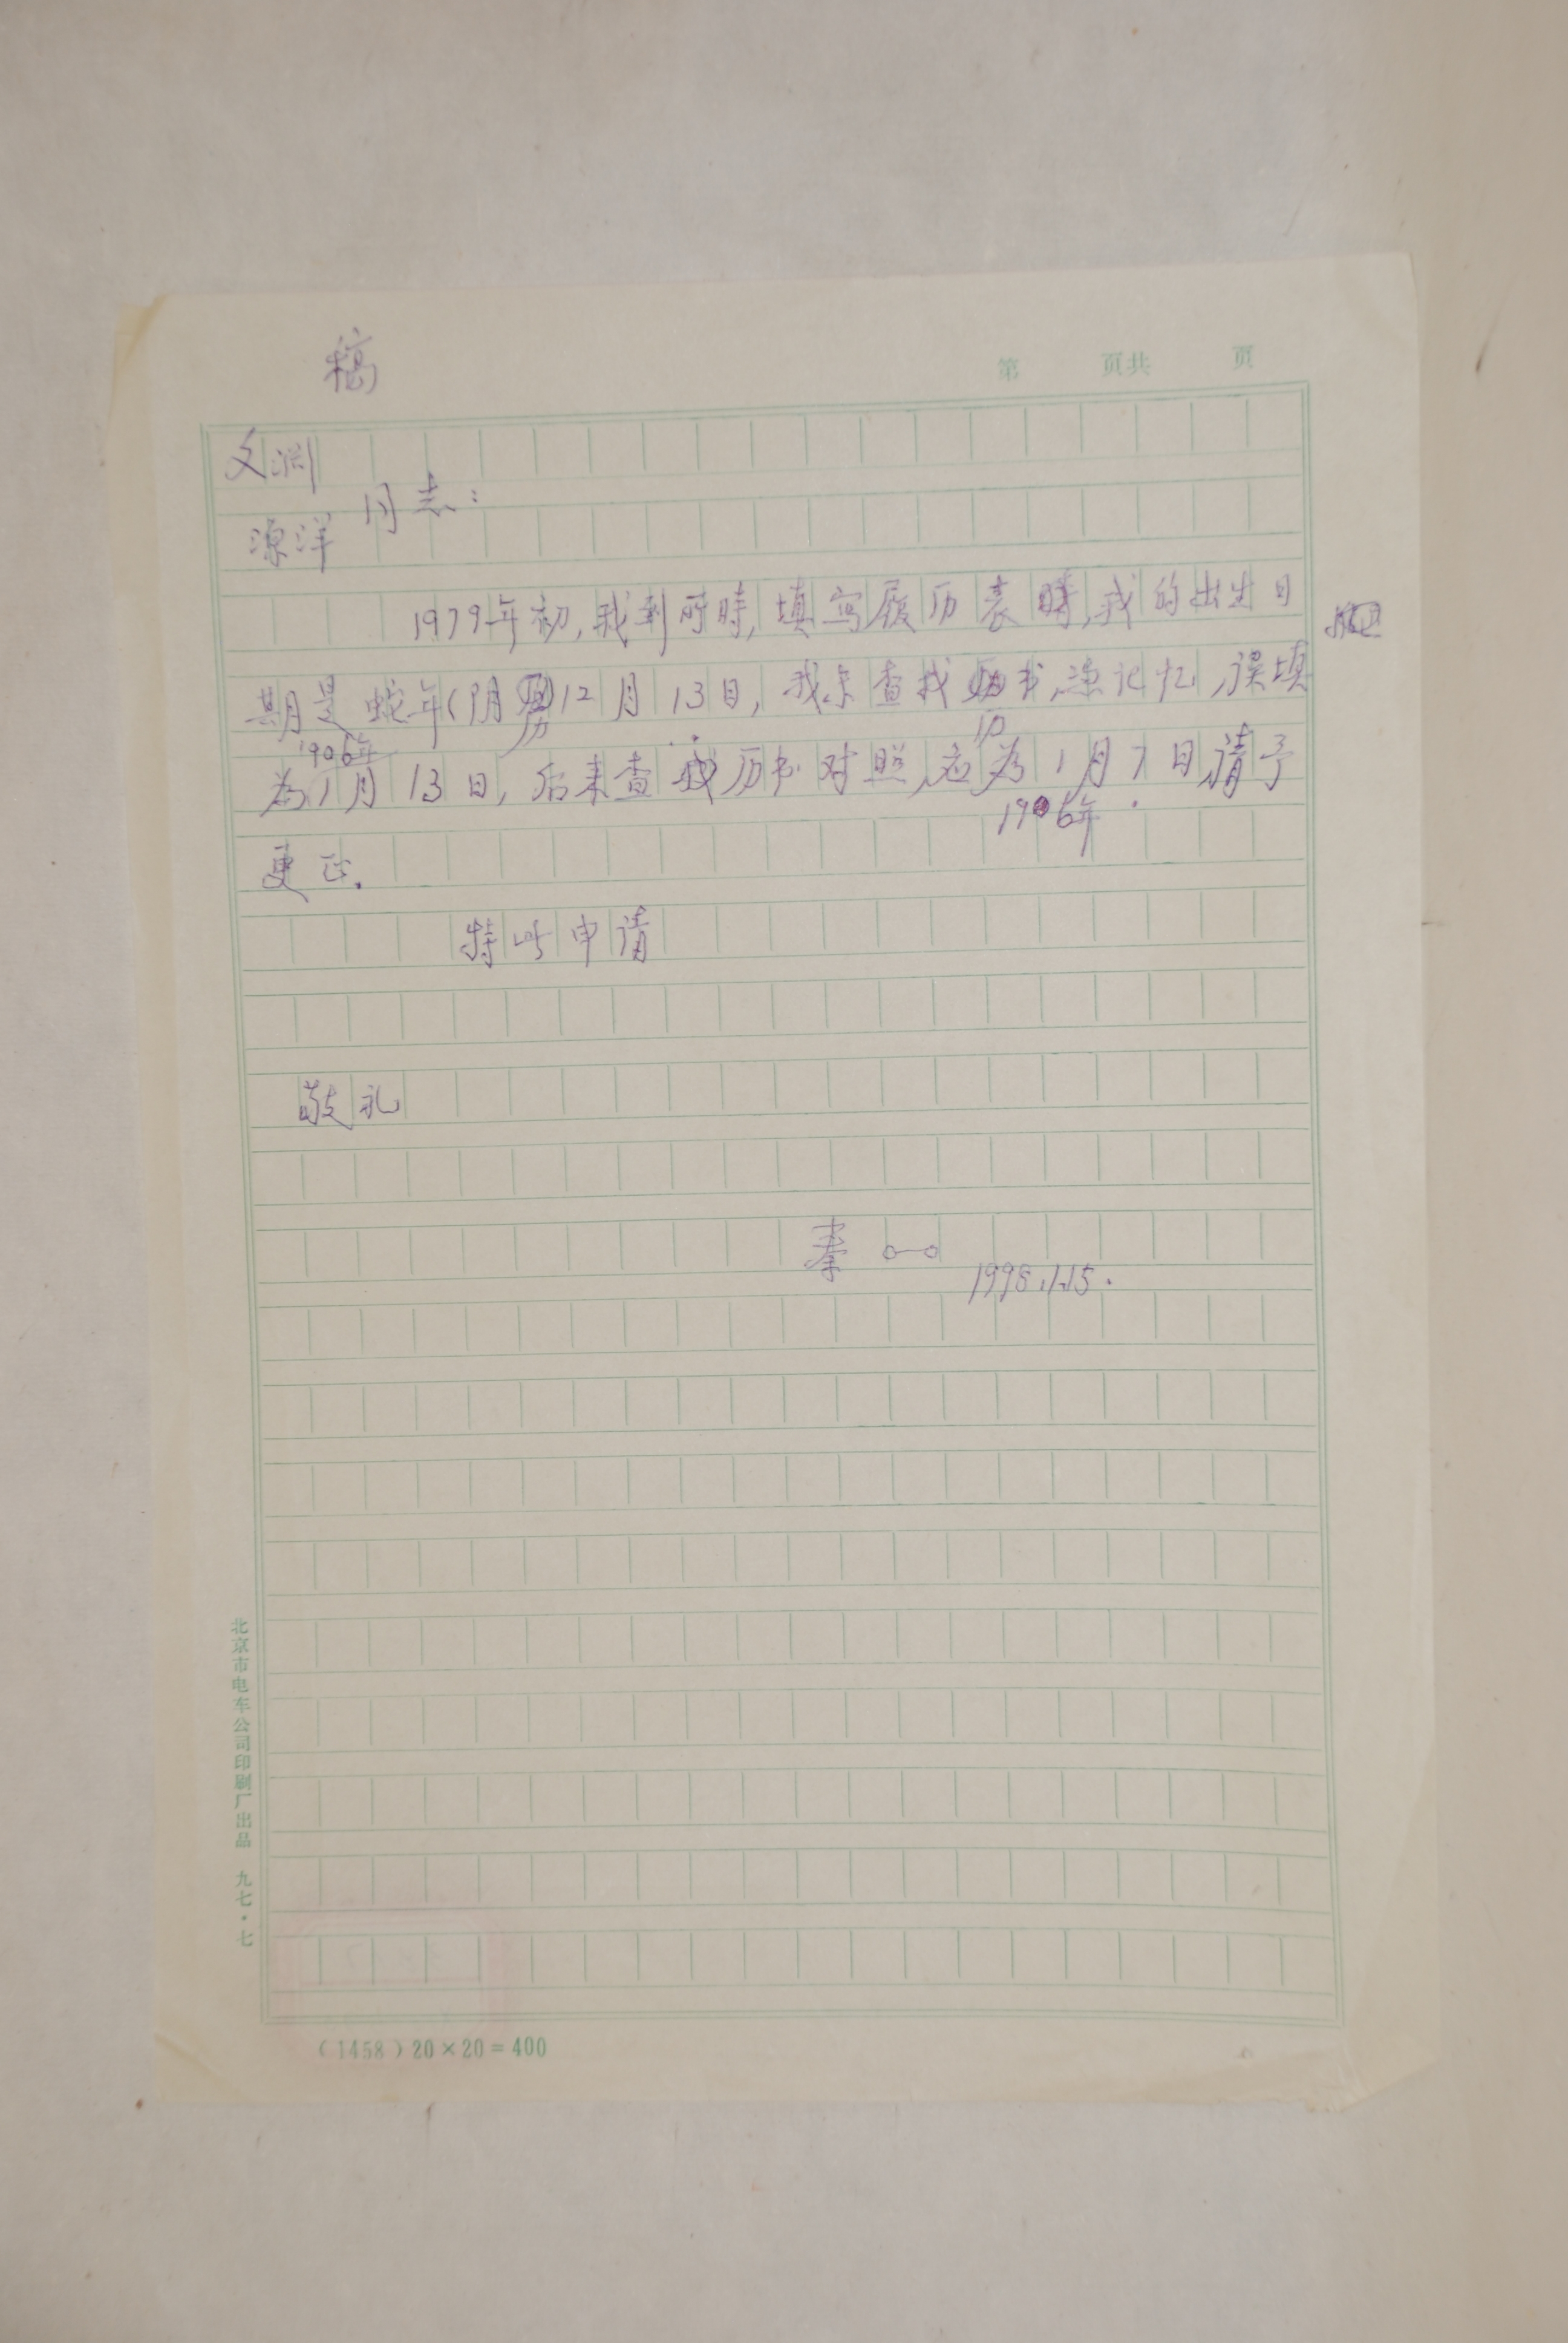 稿
第 页共 页
文渊
同志：
源洋
1979年初，我到所時，填写履历表時，我的出生日
期是蛇年（阴历12月13日，我未查找历书，凭记忆，误填
1906年
为1月13日，后来查找历书对照，应为1月7日，请予
1906年
更正．
特此申请
敬礼
秦
1998.1.15.
北京市电车公司印刷厂出品 九七·七
（1458）20×20=400